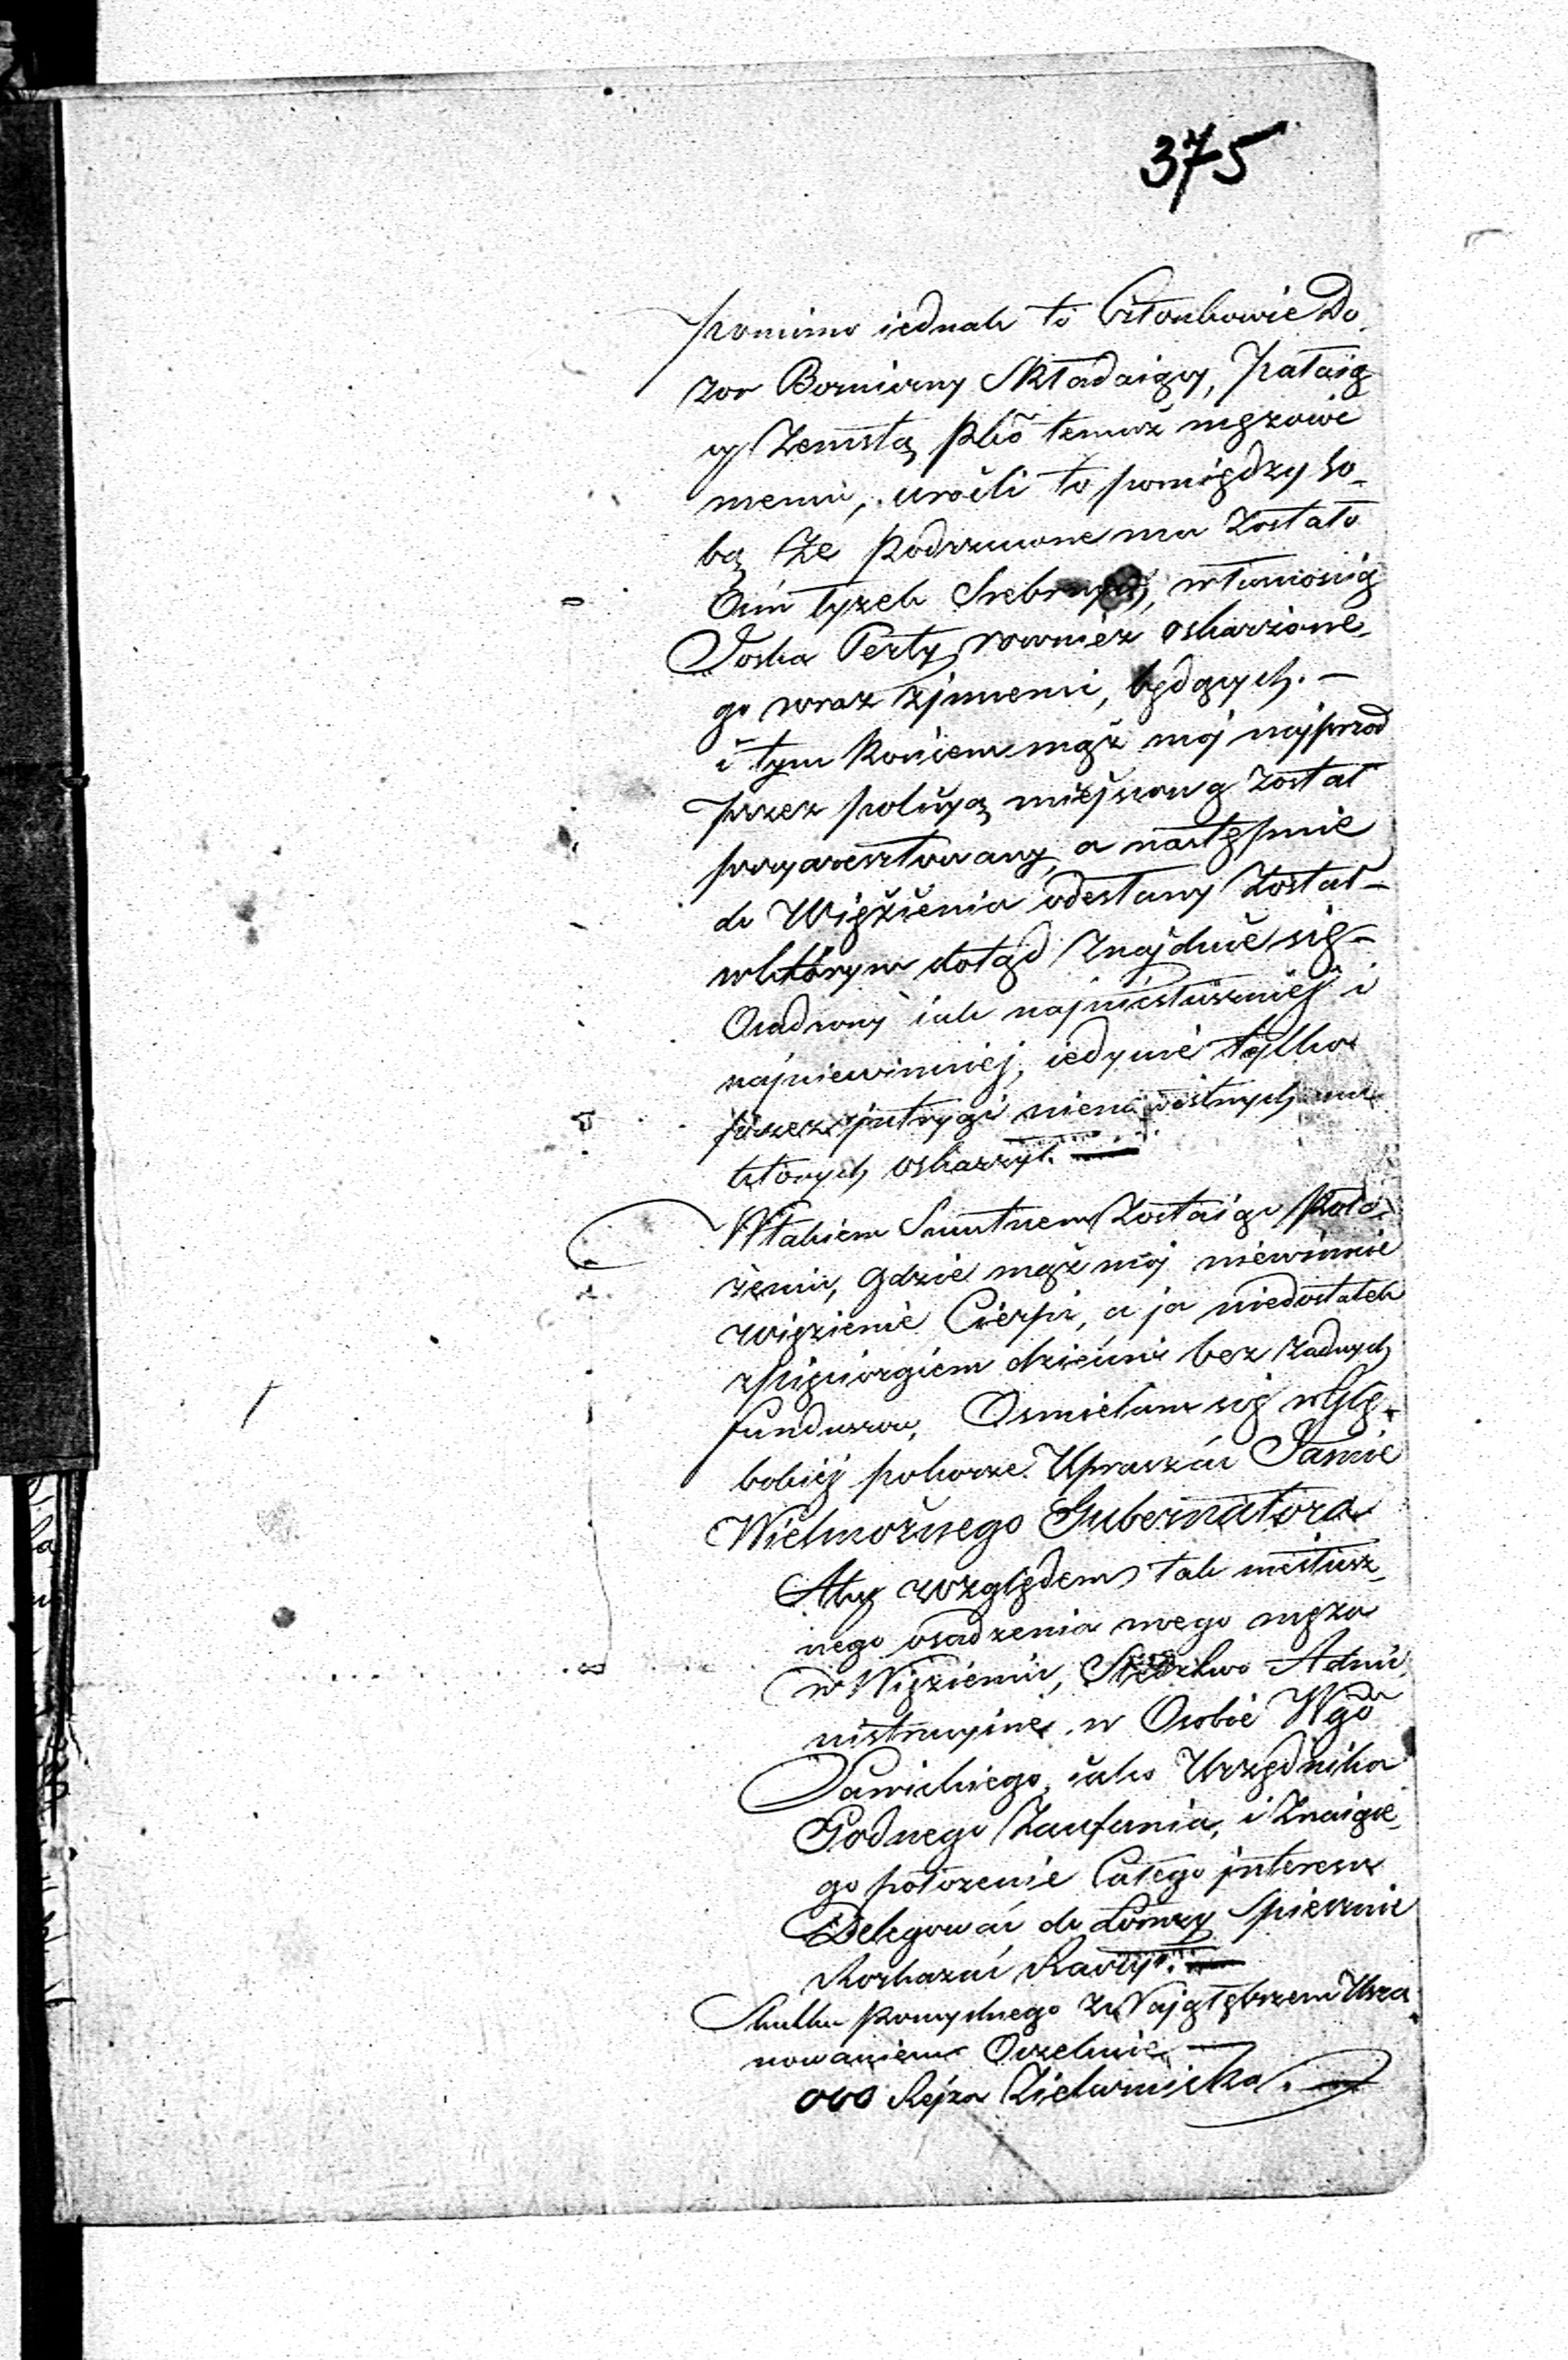 375
pomimo iednak to Członkowie Do-
zor Bozniczny Składaiący, Pałaią
cy Zemstą pko temuż mężowi
memu, uroili to pomiędzy so-
bą że podrzucone mu zostało
Ośm łyzek Srebrnych, własnością
Joska Perły rownież oskarzone-
go wraz zjnnemi, będących. –
i tym końcem mąż mój najprzod
przez policyą miejscową został
przyaresztowany, a następnie
do Więzienia odesłany został –
wktórym dotąd znajduie się –
Osadzony iak najniesłuszniej i
najniewinniej, iedynie tylko
przez jntrygi nienawistnych mu
których oskarzył. —
Wtakiem Smutnem zostaiąc poło-
żeniu, gdzie mąż mój niewinnie
więzienie Cierpi, a ja niedostatek
zpięciorgiem dziećmi bez żadnych
funduszow, Osmielam się wgłę-
bokiej pokorze Upraszać Jaśnie
Wielmożnego Gubernatora
Aby względem tak niesłusz-
nego osadzenia mego męża
w Więzieniu, Śledztwo Admi-
nistracyine w Osobie Wgo
Sawickiego, iako Urzędnika
Godnego Zaufania, i Znaiące-
go położenie Całego jnteresu
Delegować do Łomży spiesznie
Rozkazać Raczył. —
Skutku pomyslnego z Najgłębszem Usza-
nowaniem Oczekuie —
ooo Rejza Zielunicka.